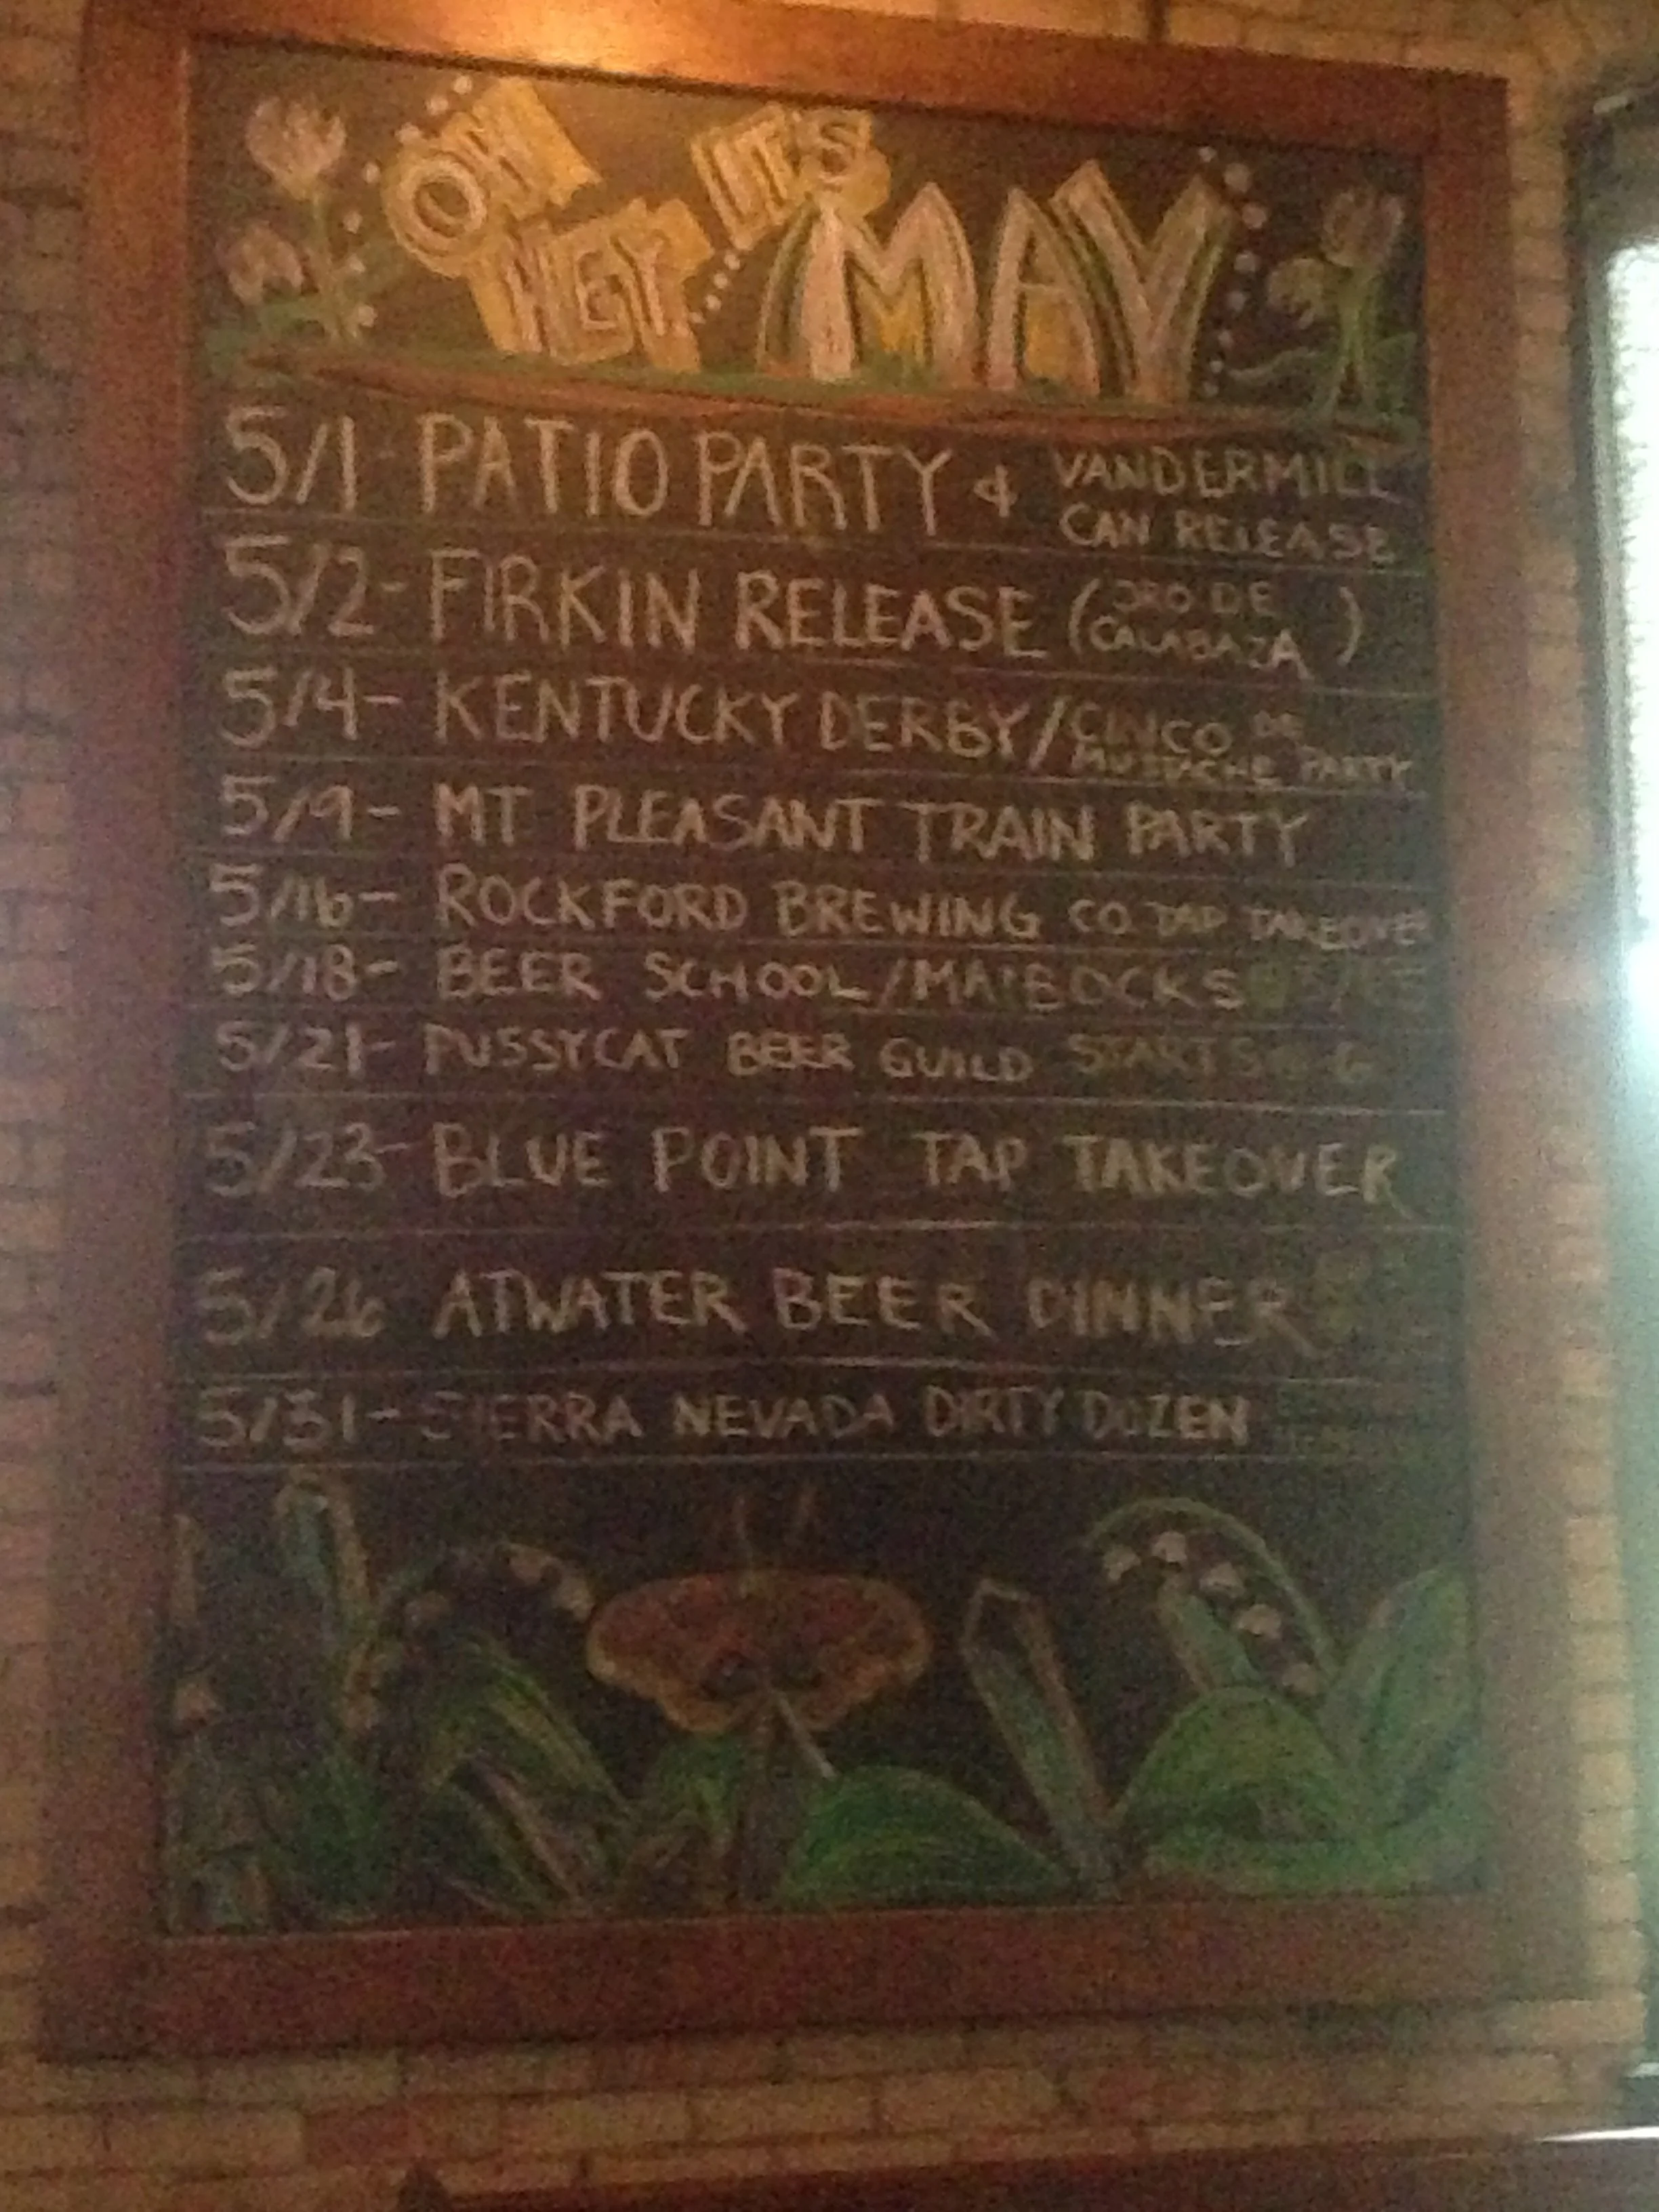 OH!
HEY.
IT'S
MAY
5/1- PATIO PARTY & VANDERMILL
CAN RELEASE
5/2- FIRKIN RELEASE (ORO DE
CALABAZA)
5/4- KENTUCKY DERBY/CINCO DE
MUSTACHE PARTY
5/9- MT PLEASANT TRAIN PARTY
5/16- ROCKFORD BREWING CO. TAP TAKEOVER
5/18- BEER SCHOOL/MAIBOCKS
5/21- PUSSYCAT BEER GUILD STARTS @ 6
5/23- BLUE POINT TAP TAKEOVER
5/26 ATWATER BEER DINNER
5/31- SIERRA NEVADA DIRTY DOZEN